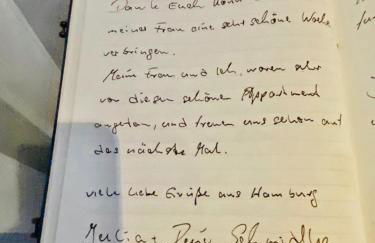 Dank Euch konnte
meiner Frau eine sehr schöne Woche
verbringen.
Meine Frau und ich, waren sehr
von diesem schönen Appartment
angetan, und freuen uns schon auf
das nächste Mal.
viele liebe Grüße aus Hamburg